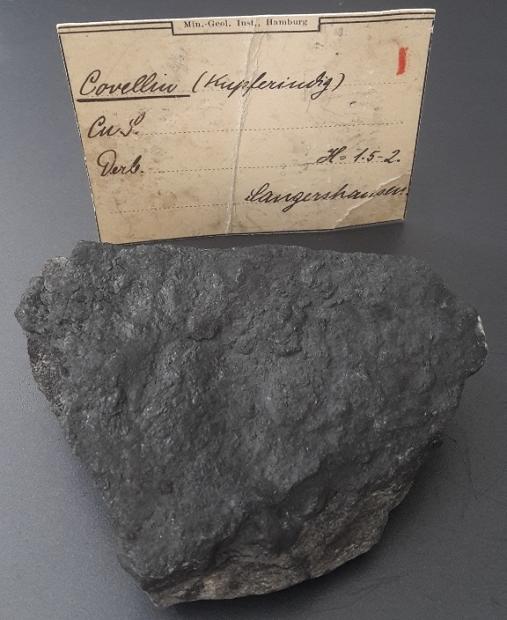 Min.-Geol. Inst., Hamburg
Covellin (Kupferindig)
Cu S.
Derb. H = 1.5-2.
Sangershausen.